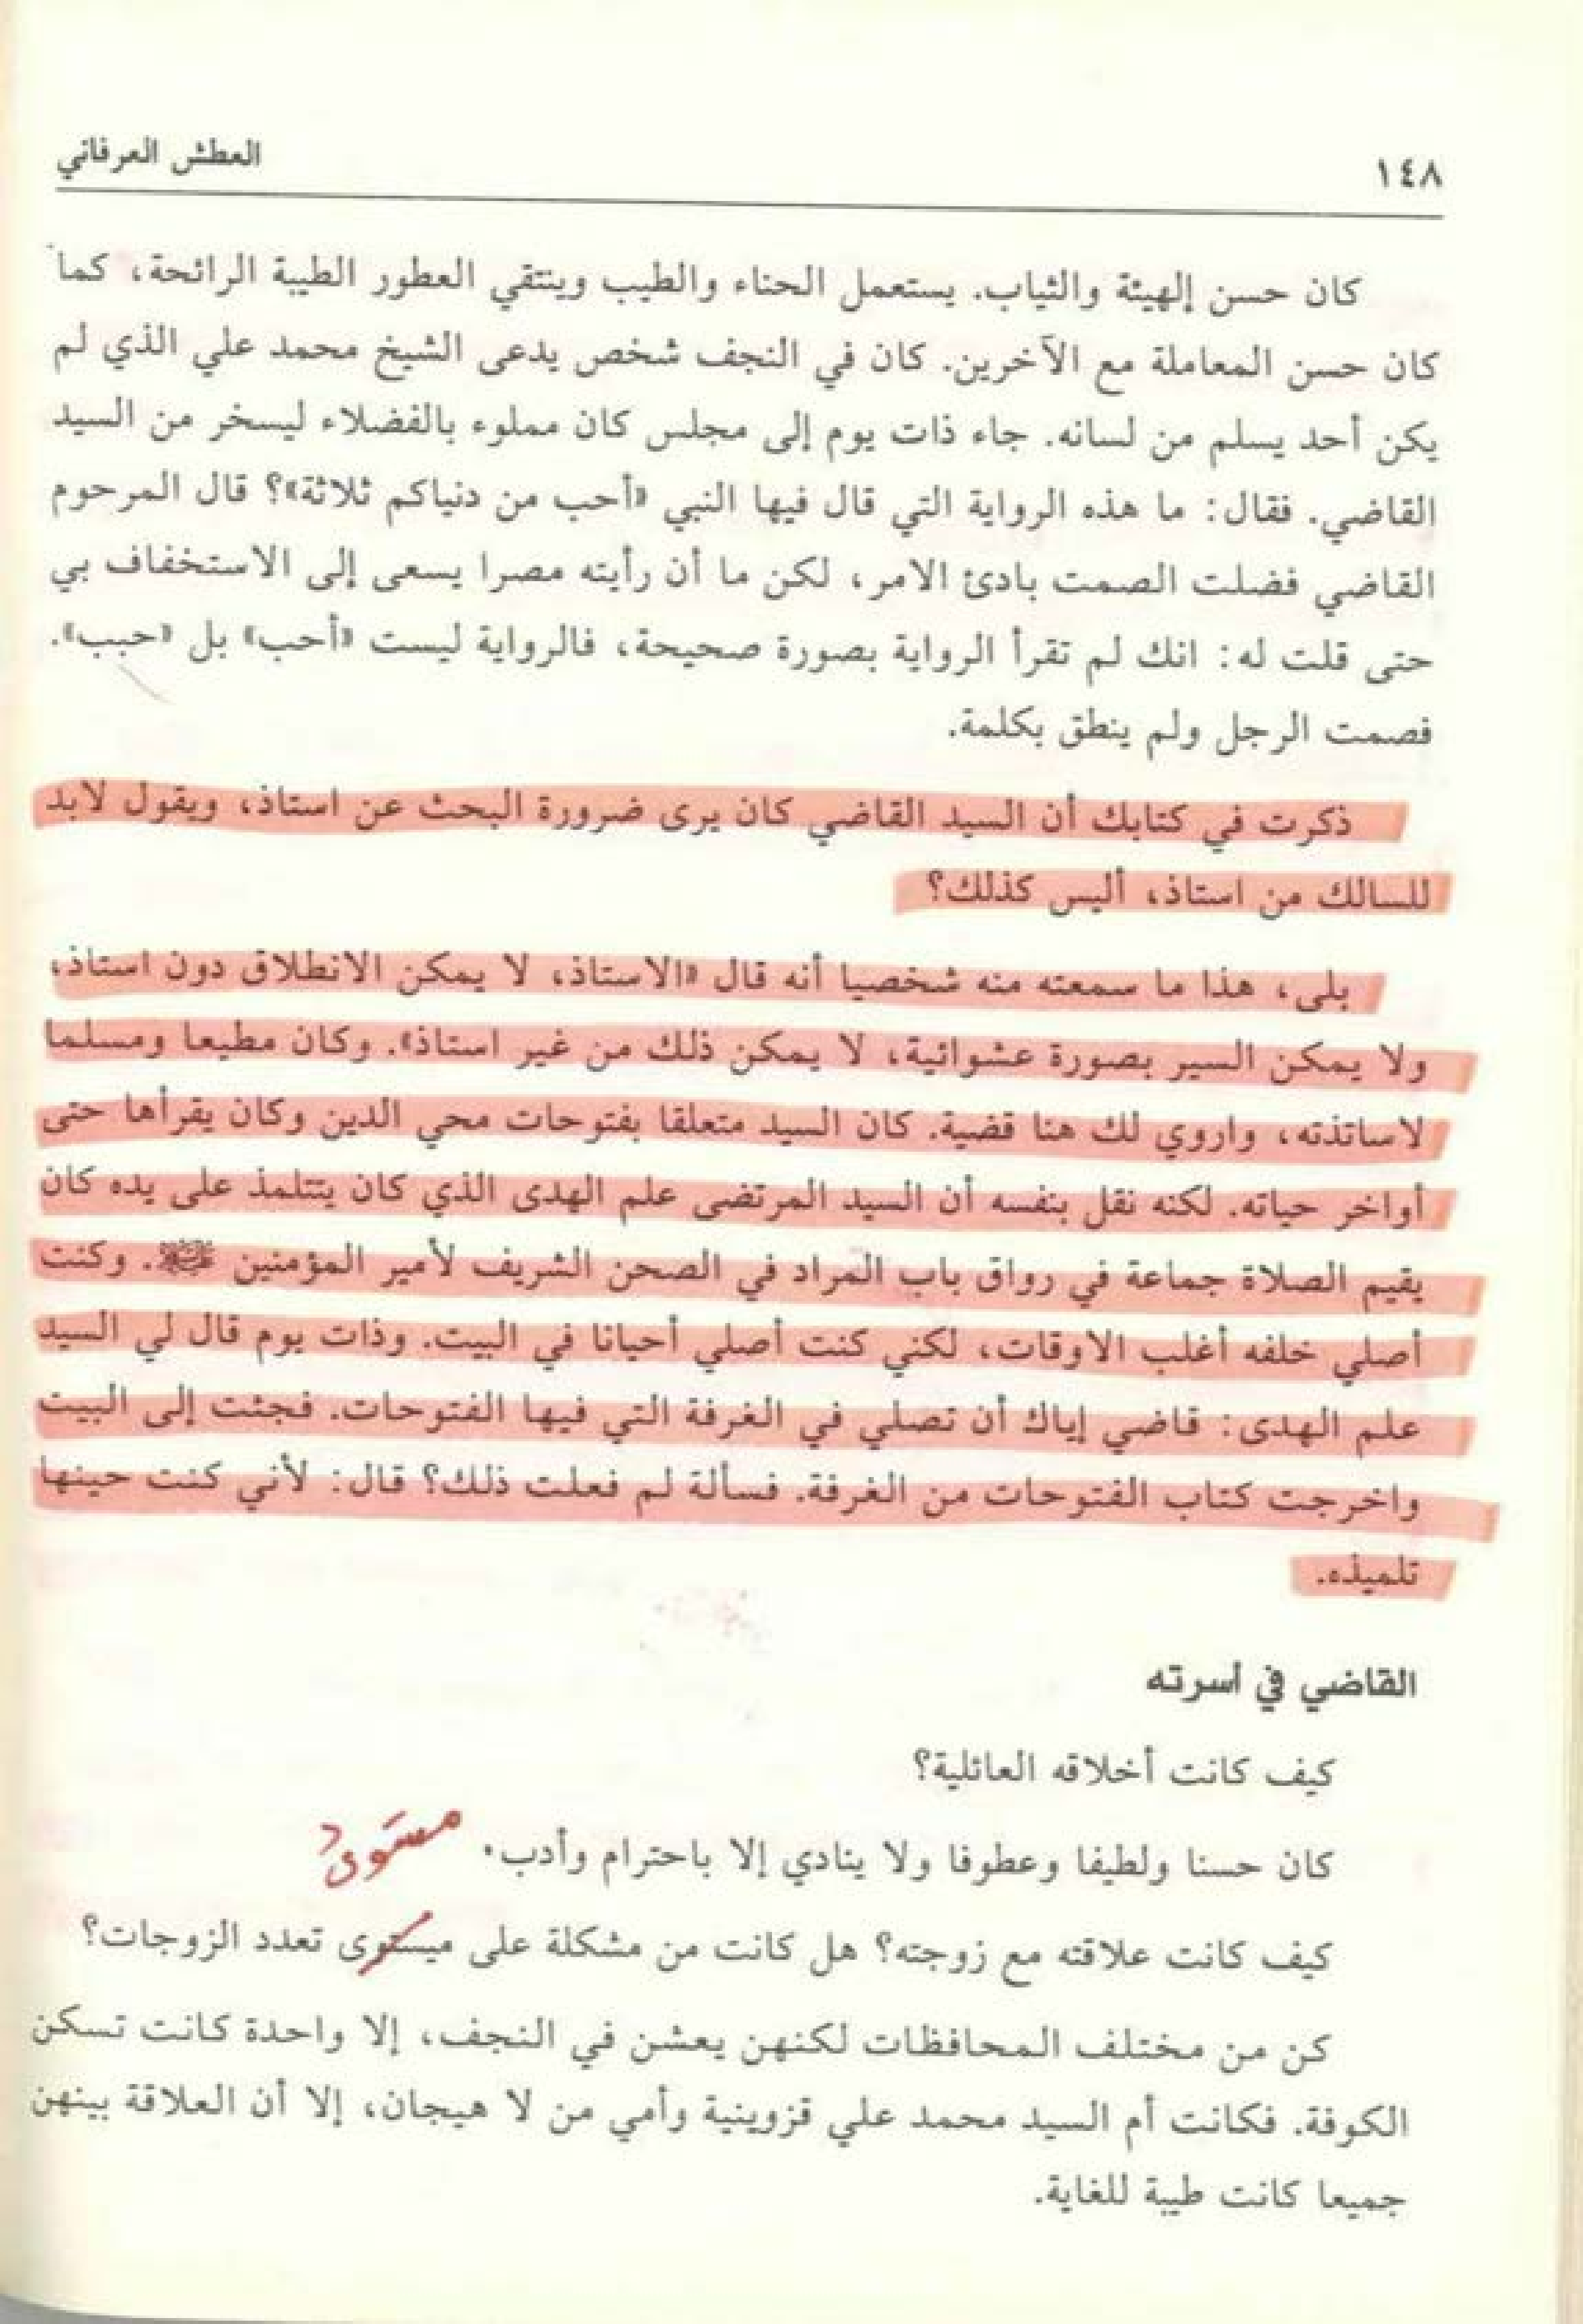 ١٤٨
العطش العرفاني
كان حسن إلهيئة والثياب. يستعمل الحناء والطيب وينتقي العطور الطيبة الرائحة، كما
كان حسن المعاملة مع الآخرين. كان في النجف شخص يدعى الشيخ محمد علي الذي لم
يكن أحد يسلم من لسانه. جاء ذات يوم إلى مجلس كان مملوء بالفضلاء ليسخر من السيد
القاضي. فقال: ما هذه الرواية التي قال فيها النبي «أحب من دنياكم ثلاثة»؟ قال المرحوم
القاضي فضلت الصمت بادئ الامر، لكن ما أن رأيته مصرا يسعى إلى الاستخفاف بي
حتى قلت له: انك لم تقرأ الرواية بصورة صحيحة، فالرواية ليست «أحب» بل «حبب».
فصمت الرجل ولم ينطق بكلمة.
ذكرت في كتابك أن السيد القاضي كان يرى ضرورة البحث عن استاذ، ويقول لابد
للسالك من استاذ، أليس كذلك؟
بلى، هذا ما سمعته منه شخصيا أنه قال «الاستاذ، لا يمكن الانطلاق دون استاذ،
ولا يمكن السير بصورة عشوائية، لا يمكن ذلك من غير استاذ». وكان مطيعا ومسلما
لاساتذته، واروي لك هنا قضية. كان السيد متعلقا بفتوحات محي الدين وكان يقرأها حتى
أواخر حياته. لكنه نقل بنفسه أن السيد المرتضى علم الهدى الذي كان يتتلمذ على يده كان
يقيم الصلاة جماعة في رواق باب المراد في الصحن الشريف لأمير المؤمنين. وكنت
أصلي خلفه أغلب الاوقات، لكني كنت أصلي أحيانا في البيت. وذات يوم قال لي السيد
علم الهدى: قاضي إياك أن تصلي في الغرفة التي فيها الفتوحات. فجئت إلى البيت
واخرجت كتاب الفتوحات من الغرفة. فسألة لم فعلت ذلك؟ قال: لأني كنت حينها
تلميذه.
القاضي في أسرته
كيف كانت أخلاقه العائلية؟
كان حسنا ولطيفا وعطوفا ولا ينادي إلا باحترام وأدب.
كيف كانت علاقته مع زوجته؟ هل كانت من مشكلة على ميستوى تعدد الزوجات؟
كن من مختلف المحافظات لكنهن يعشن في النجف، إلا واحدة كانت تسكن
الكوفة. فكانت أم السيد محمد علي قزوينية وأمي من لا هيجان، إلا أن العلاقة بينهن
جميعا كانت طيبة للغاية.